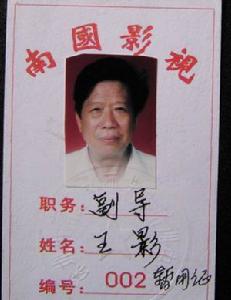 南國影視
职务：副导
姓名：王影
编号：002暂用证